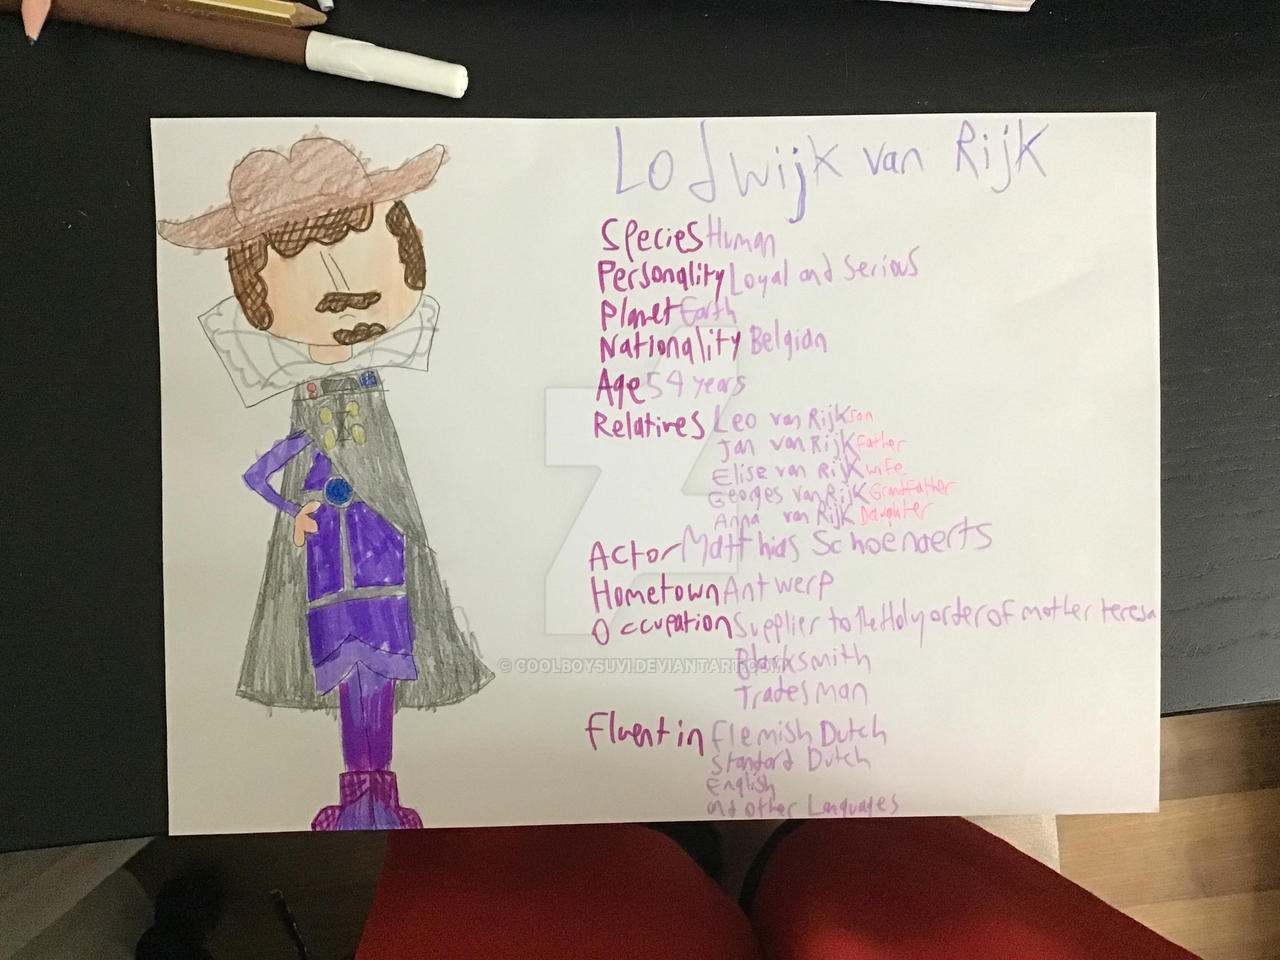 Lodwijk van Rijk
Species Human
Personality Loyal and Serious
Planet Earth
Nationality Belgian
Age 54 years
Relatives Leo van Rijk son
Jan van Rijk Father
Elise van Rijk wife
Georges van Rijk Grandfather
Anna van Rijk Daughter
Actor Matthias Schoenaerts
Hometown Antwerp
Occupation Supplier to the Holy order of mother teresa
Blacksmith
Tradesman
Fluent in Flemish Dutch
Standard Dutch
English
and other Languages
© COOLBOYSUVI.DEVIANTART.COM